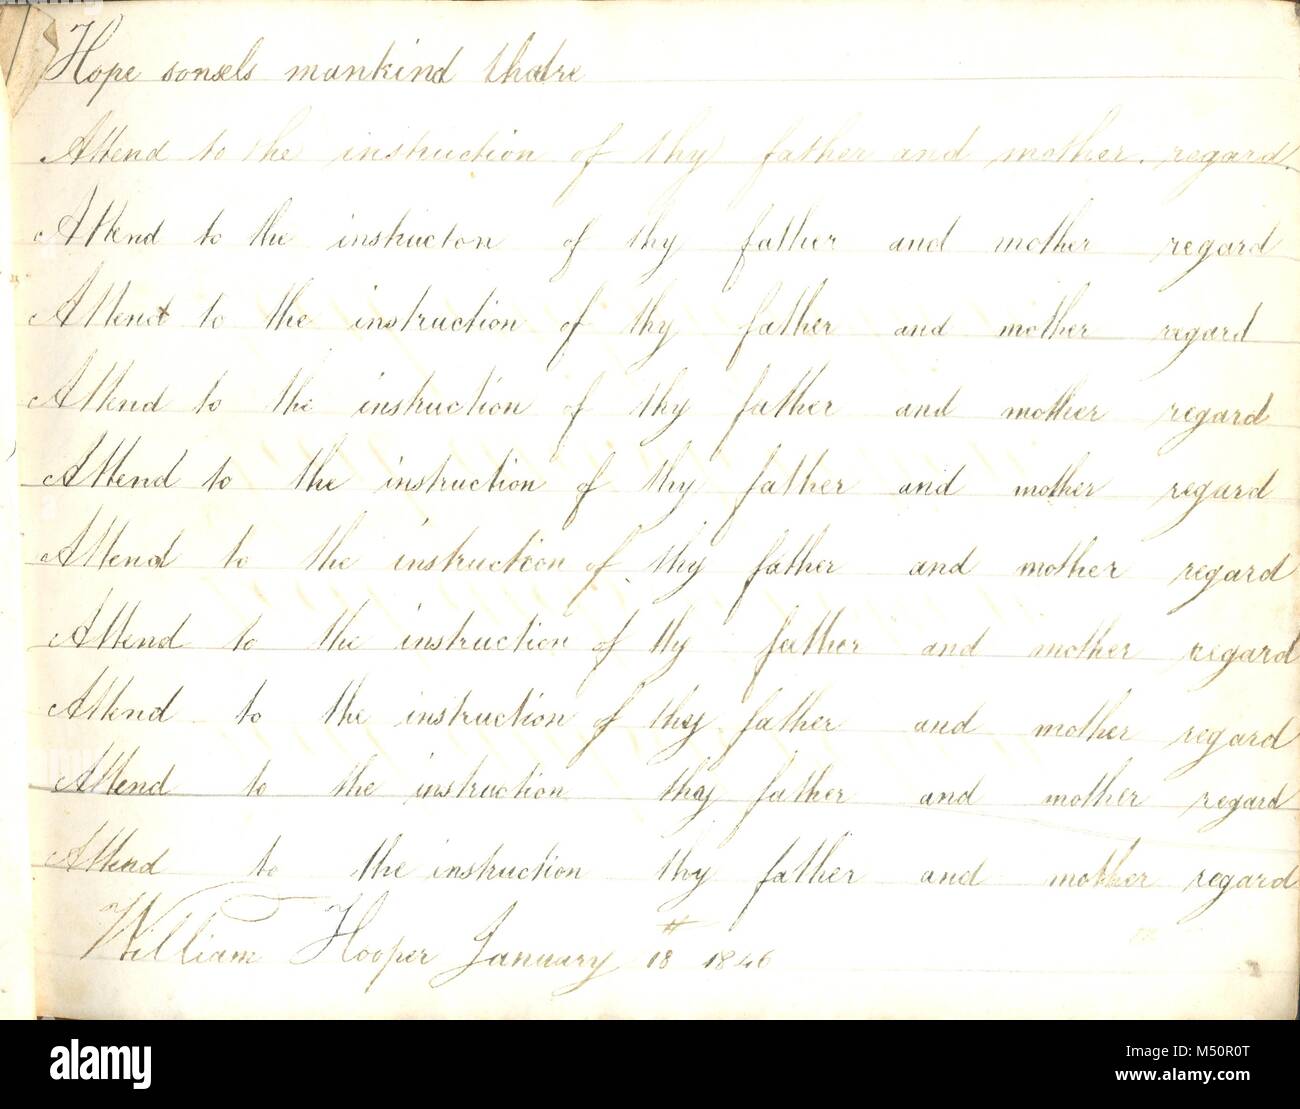 Hope sonsels mankind thatre
Attend to the instruction of thy father and mother. regard.
Attend to the instructon of thy father and mother regard
Attend to the instruction of thy father and mother regard
Attend to the instruction of thy father and mother regard
Attend to the instruction of thy father and mother regard
Attend to the instruction of thy father and mother regard
Attend to the instruction of thy father and mother regard
Attend to the instruction of thy father and mother regard
Attend to the instruction thy father and mother regard
Attend to the instruction thy father and mother regard
William Hooper January 18th 1846
alamy
Image ID: M50R0T
www.alamy.com